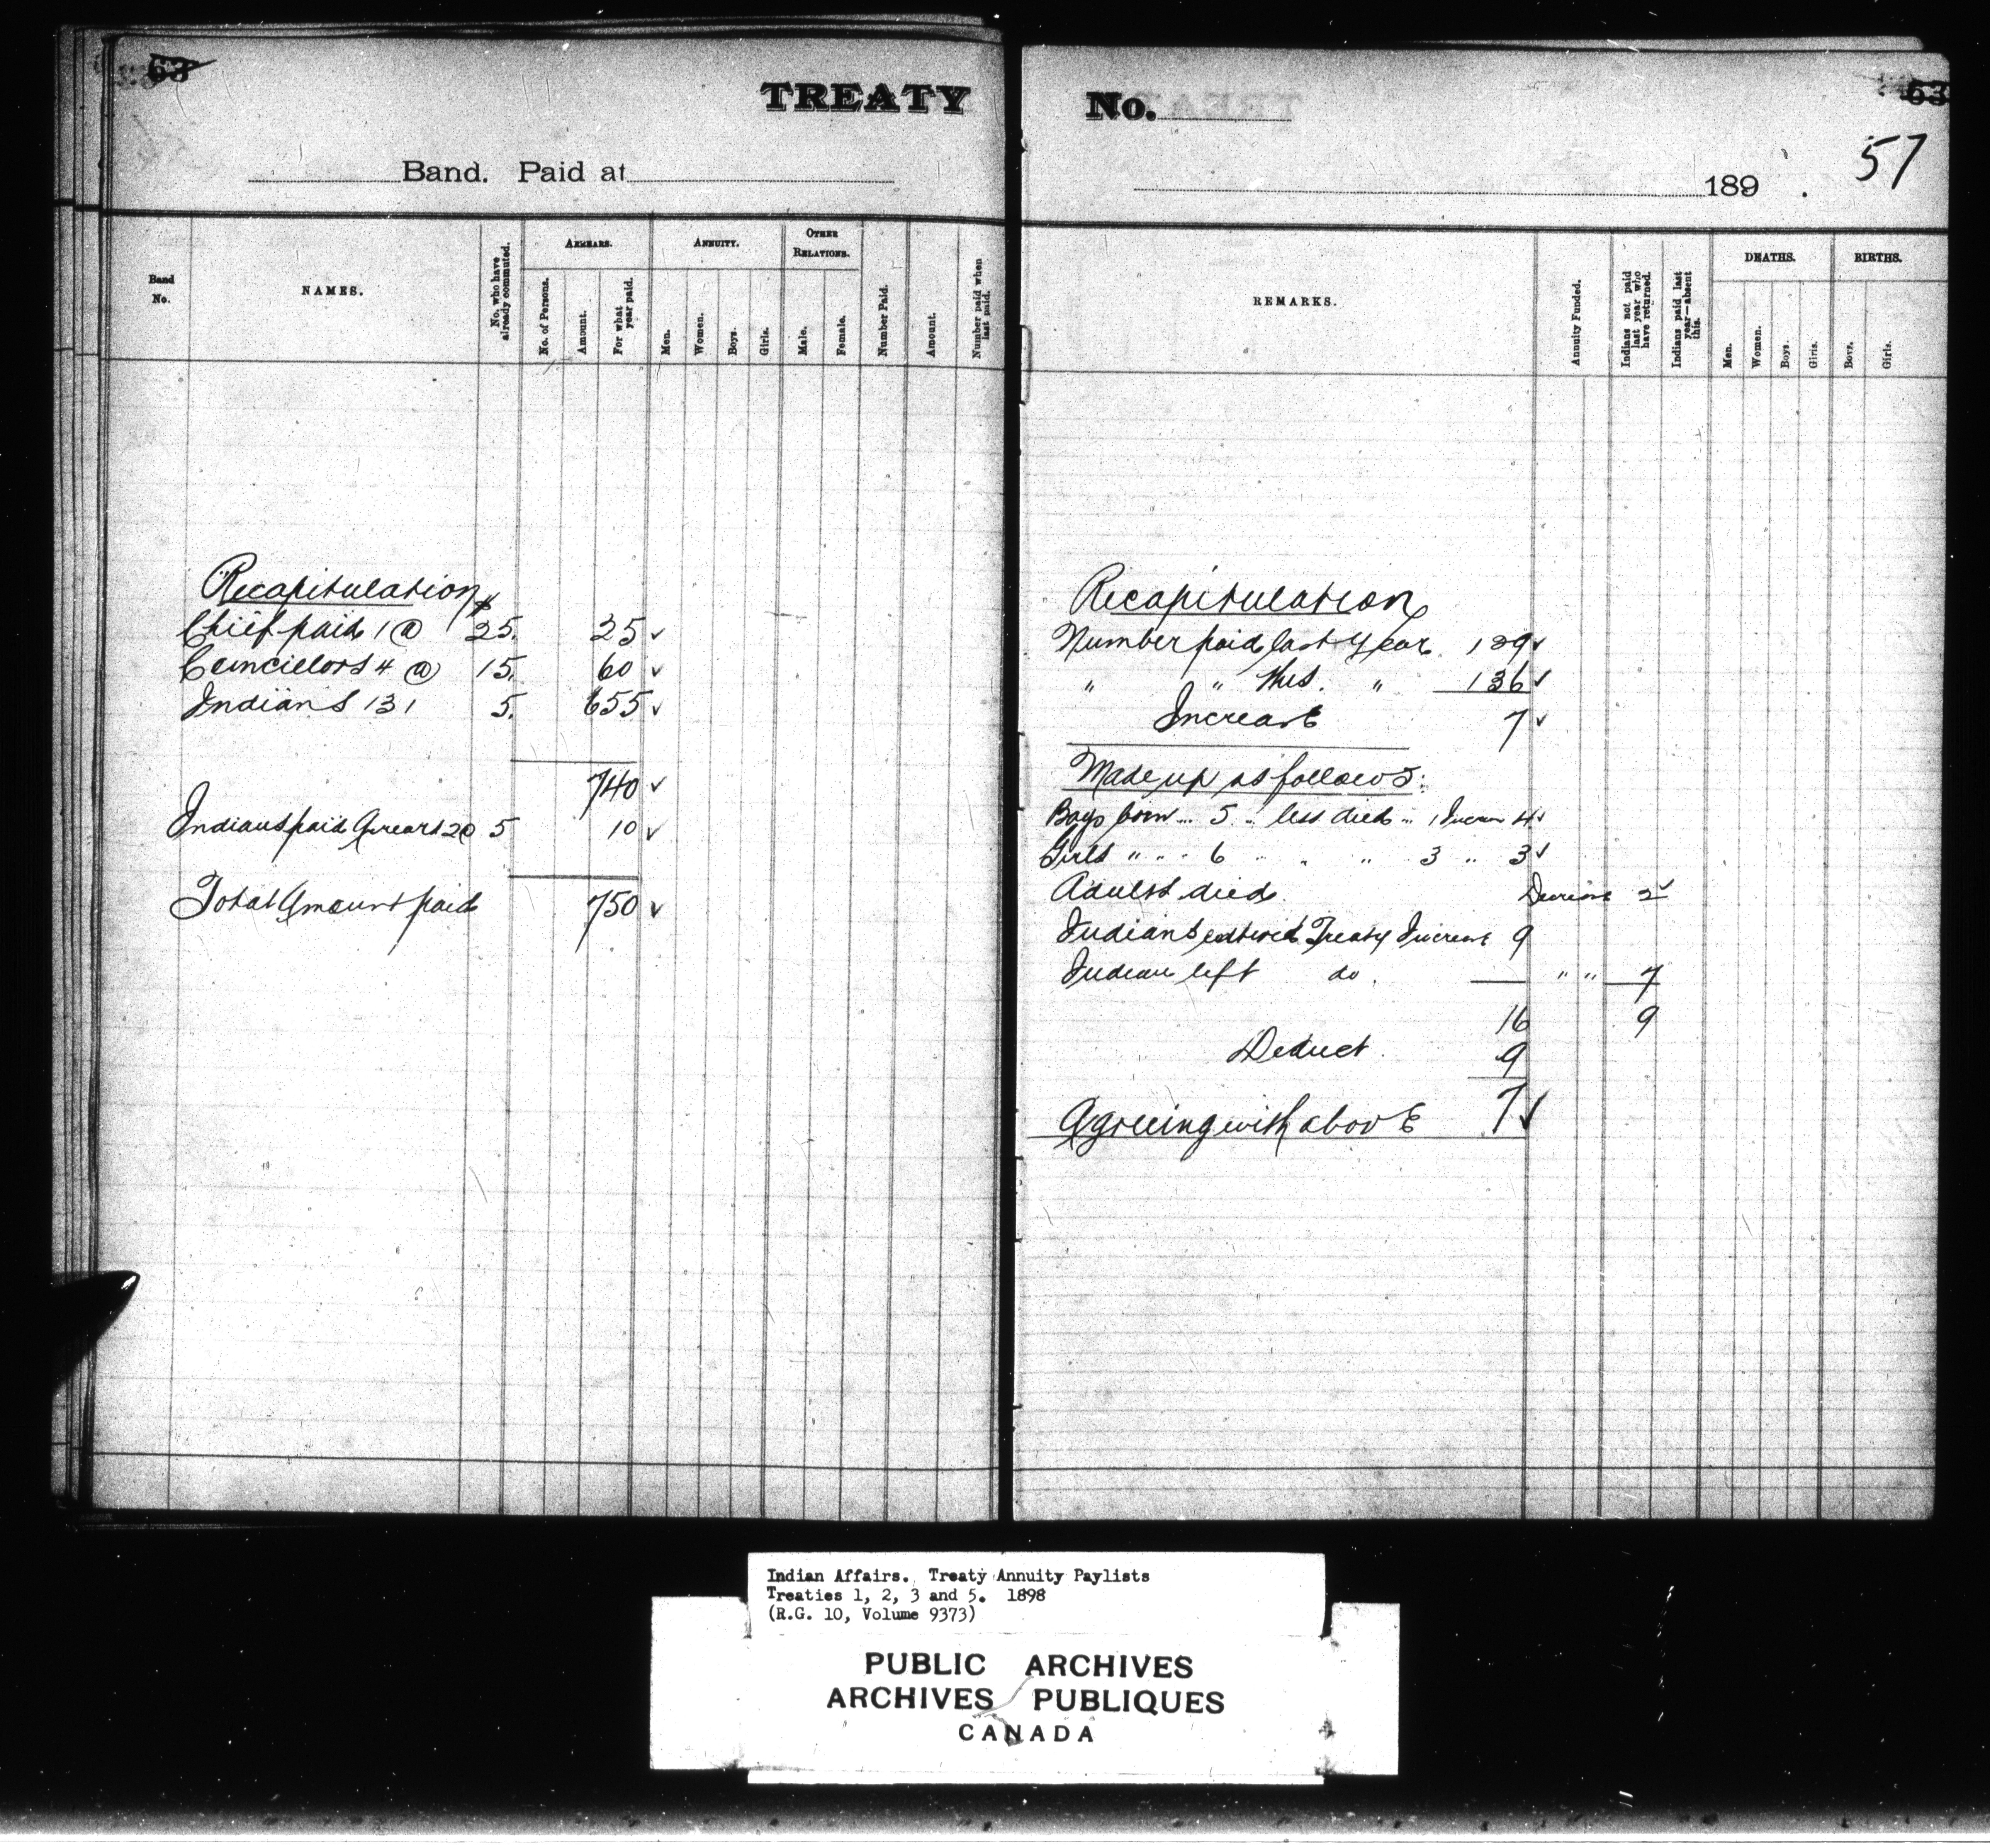 63
TREATY
Band. Paid at
Band No.
NAMES.
No. who have already commuted.
ARREARS.
No. of Persons.
Amount.
For what year paid.
ANNUITY.
Men.
Women.
Boys.
Girls.
OTHER RELATIONS.
Male.
Female.
Number Paid.
Amount.
Number paid when last paid.
Recapitulation $
Chief paid 1 @ 25. 25 ✓
Councillors 4 @ 15. 60 ✓
Indians 131 5. 655 ✓
740 ✓
Indians paid Arrears 2@ 5 10 ✓
Total Amount paid 750 ✓
No.
63
57
189 .
REMARKS.
Annuity Funded.
Indians not paid last year who have returned.
Indians paid last year—absent this.
DEATHS.
Men.
Women.
Boys.
Girls.
BIRTHS.
Boys.
Girls.
Recapitulation
Number paid last year 129 ✓
" " this. " 136 ✓
Increase 7 ✓
Made up as follows:
Boys born 5 .. less died .. 1 Increase 4 ✓
Girls " .. 6 .. " " 3 " 3 ✓
Adults died. Decrease 2 ✓
Indians entered Treaty Increase 9
Indian left do. " " 7
16 9
Deduct. 9
Agreeing with above 7 ✓
Indian Affairs. Treaty Annuity Paylists
Treaties 1, 2, 3 and 5. 1898
(R.G. 10, Volume 9373)
PUBLIC ARCHIVES
ARCHIVES PUBLIQUES
CANADA